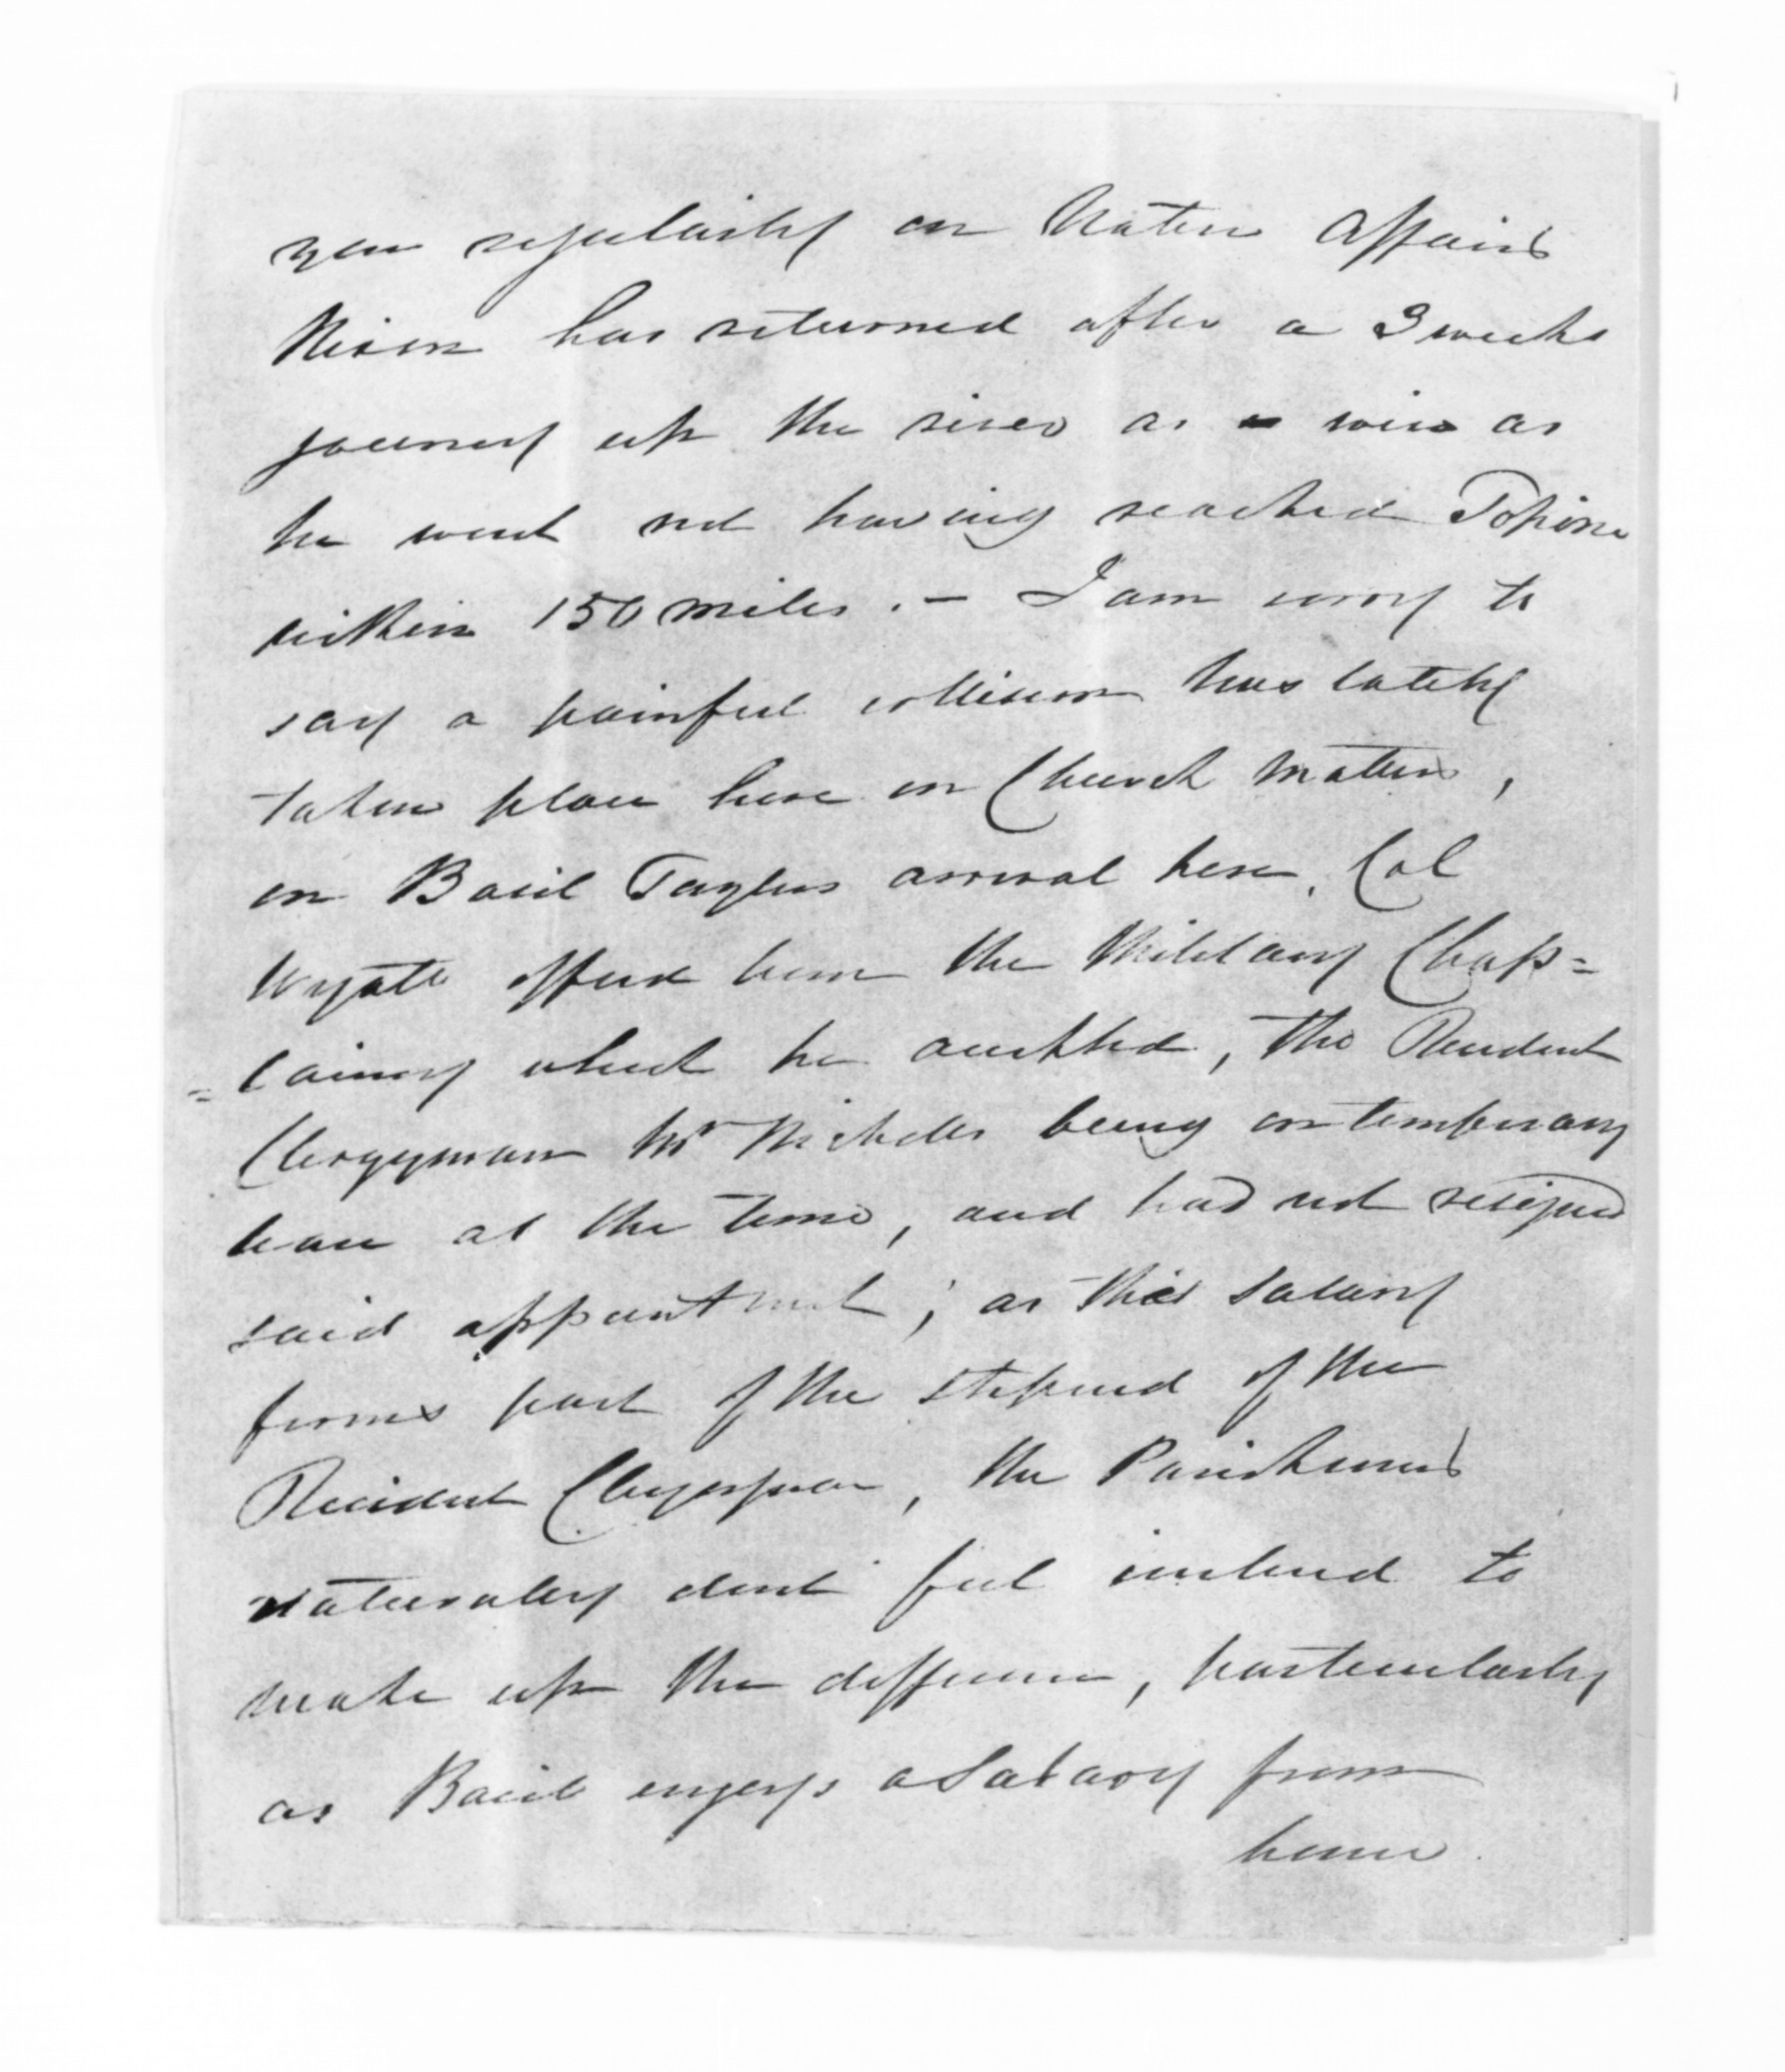 you regularly on Native Affairs
Nixon has returned after a 3 weeks
journey up the river as wise as
he went not having reached Topine
within 150 miles. – I am sorry to
say a painful collision has lately
taken place here on Church matters,
on Basil Taylors arrival here, Col
Wyatt offered him the Military Chap=
=laincy which he accepted, the Resident
Clergyman Mr Nicholls being on temporary
leave at the time, and had not resigned
said appointment; as this salary
forms part of the stipend of the
Resident Clergyman, the Parishioners
naturally dont feel inclined to
make up the difference, particularly
as Basil enjoys a Salary from
home.